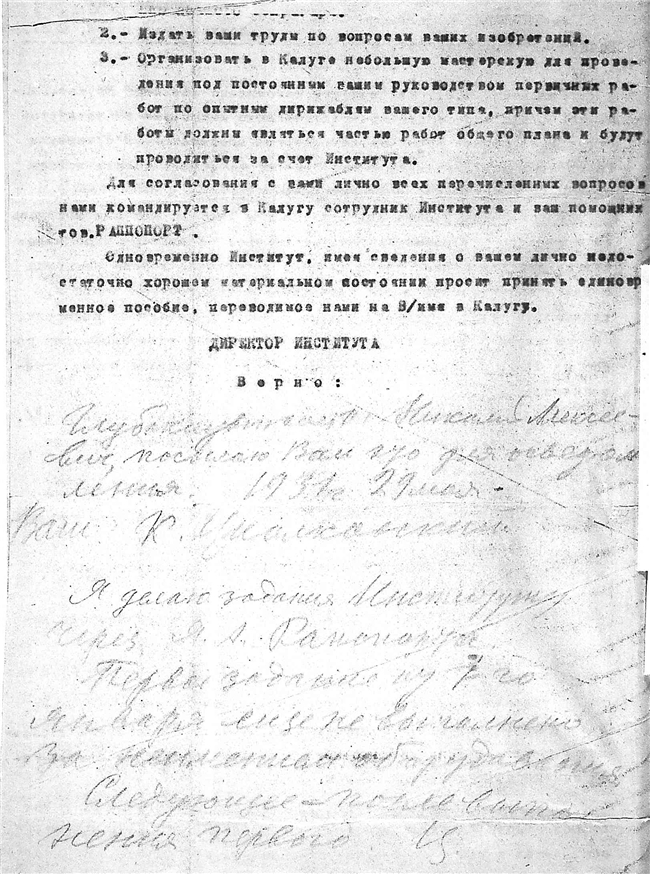 2.- Издать ваши труды по вопросам ваших изобретений.
3.- Организовать в Калуге небольшую мастерскую для прове-
дения под постоянным вашим руководством первичных ра-
бот по опытным дирижаблям вашего типа, причем эти ра-
боты должны являться частью работ общего плана и будут
проводиться за счет Института.
Для согласования с вами лично всех перечисленных вопросов
нами командируется в Калугу сотрудник Института и ваш помощник
тов.РАППОПОРТ .
Одновременно Институт, имея сведения о вашем лично недо-
статочно хорошем материальном состоянии просит принять единовр
менное пособие, переводимое нами на В/имя в Калугу.
ДИРЕКТОР ИНСТИТУТА
Верно:
Глубокоуважаемый Николай Алексее-
вич, посылаю Вам это для осведом
ления. 29 мая.
Ваш К. Циолковский
Я делаю задания Институту
Через Я. А. Рапопорта
Первое задание 7-го
Января еще не выполнено
За неимением оборудования
Следующие - после выпол
нения первого Ц.